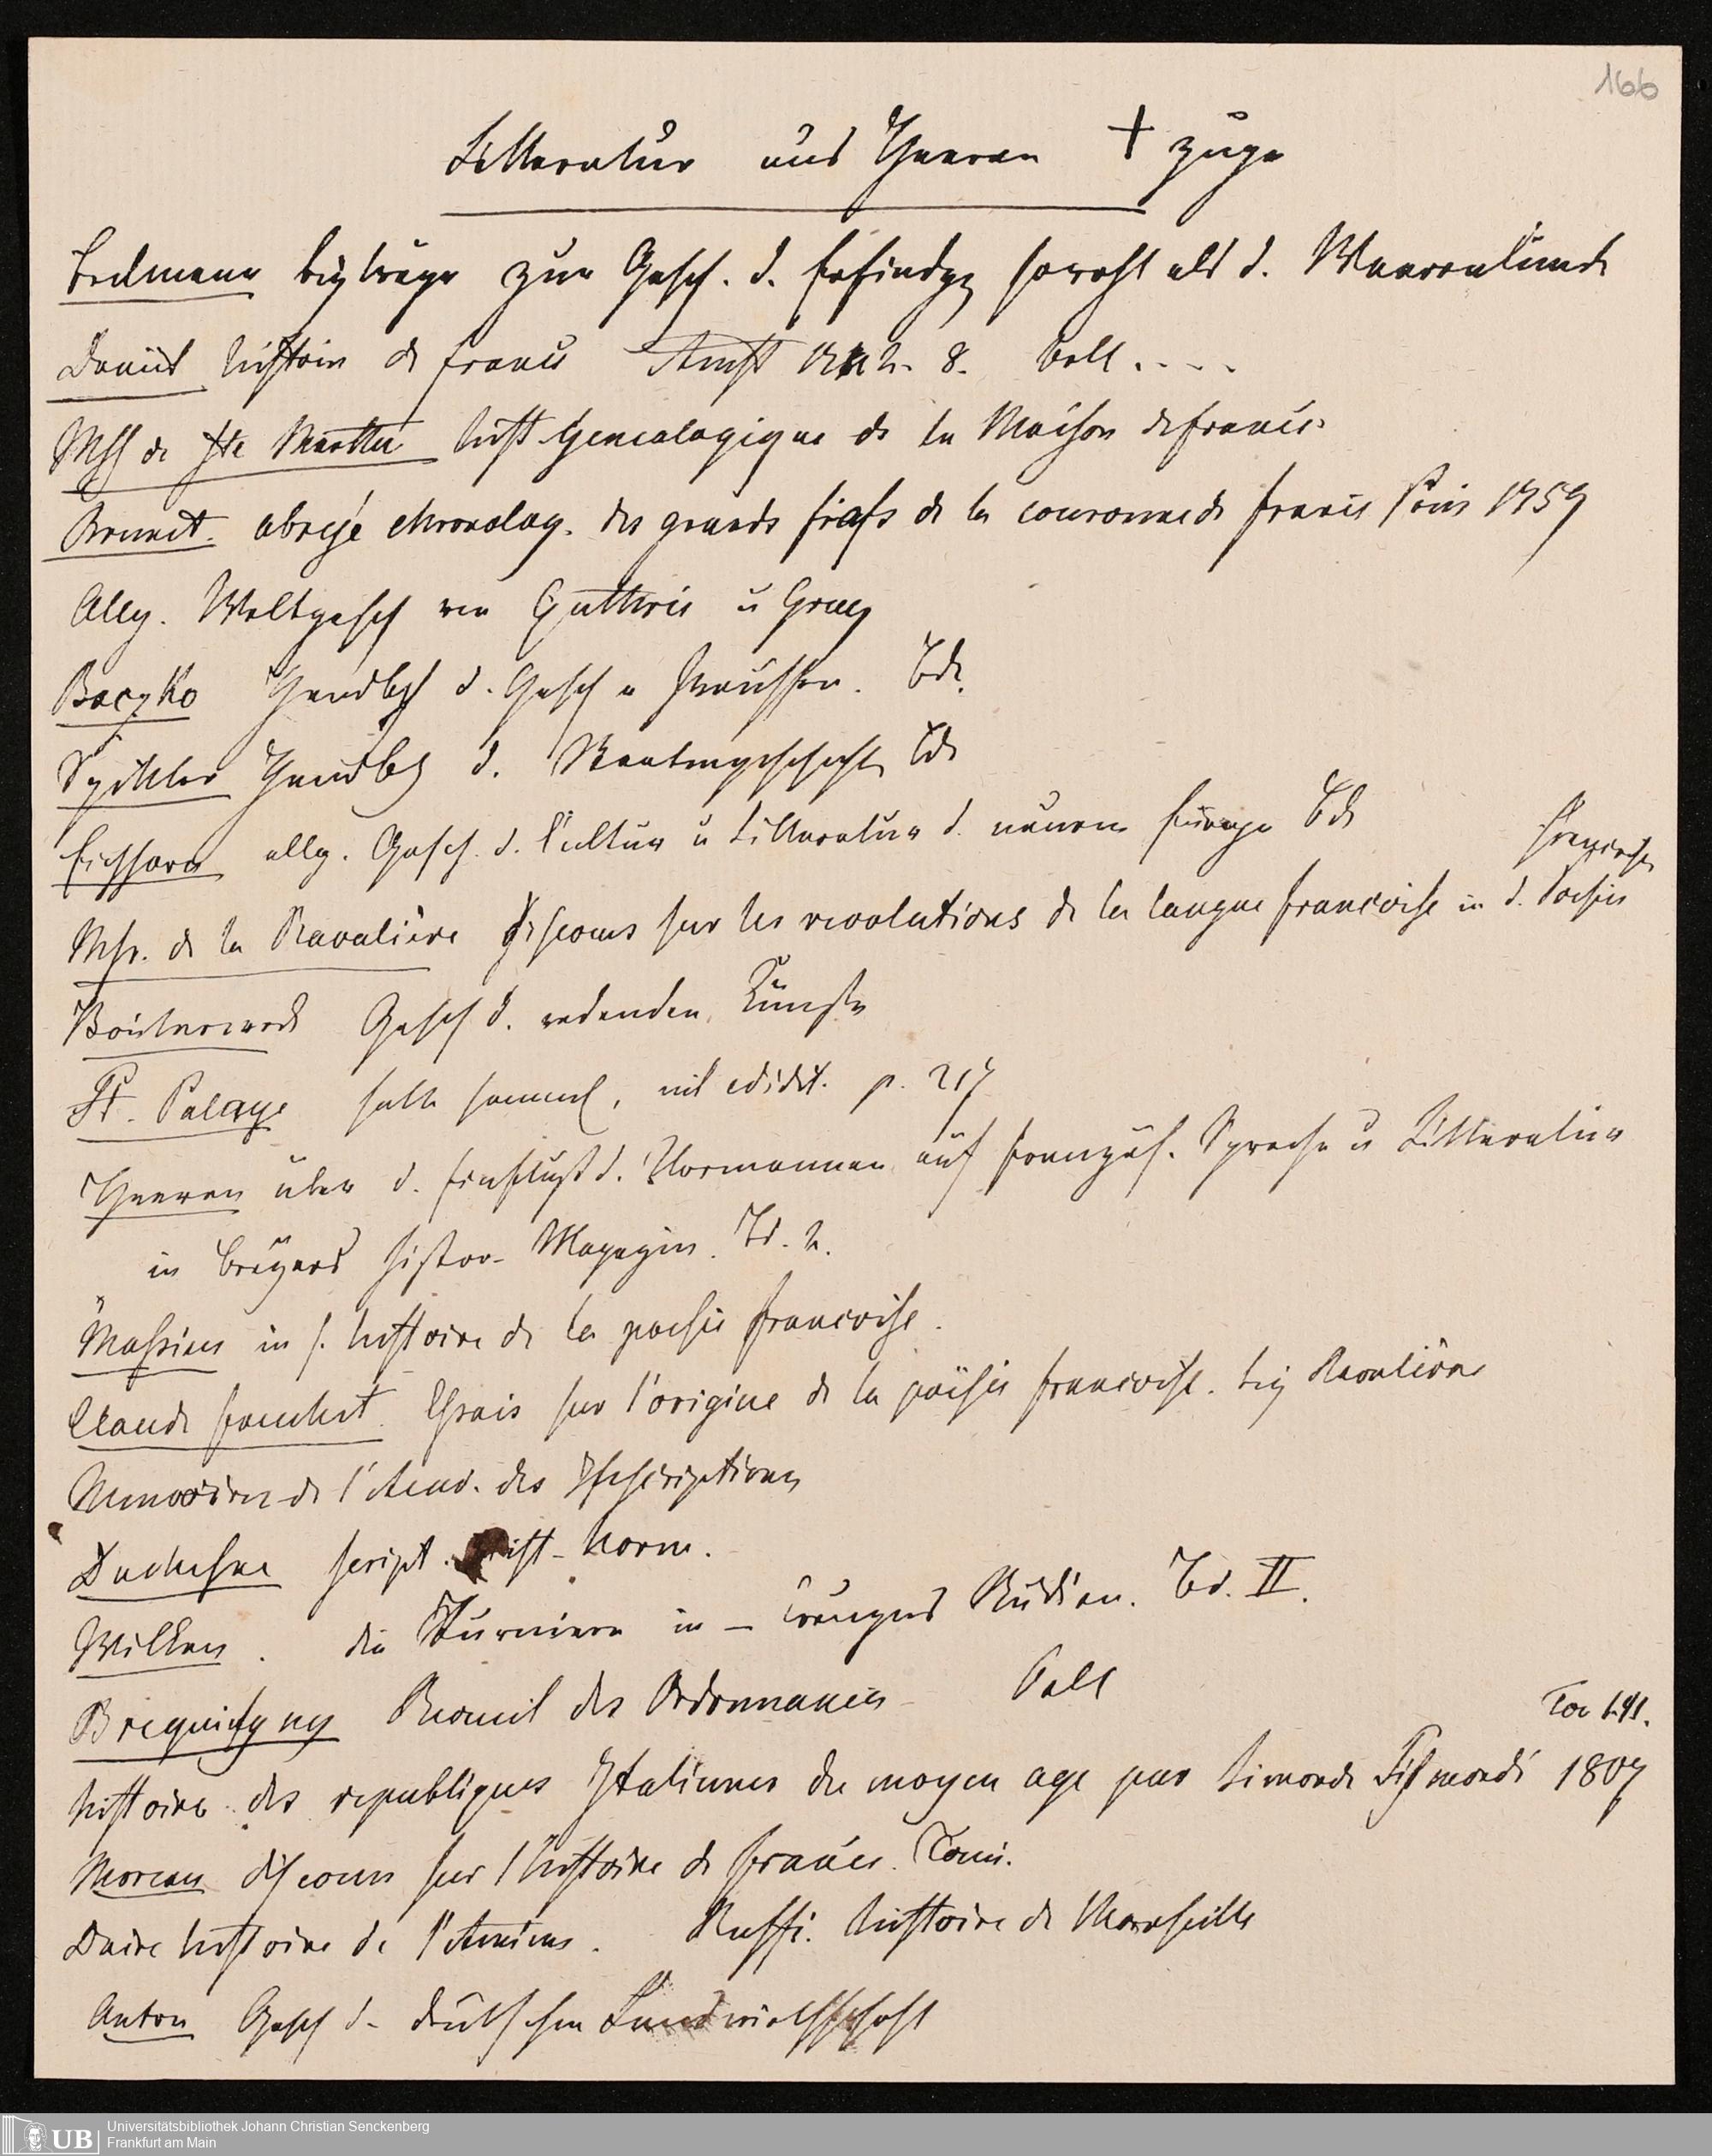 166
Litteratur aus Heeren + züge
Beckmann beyträge zur Gesch. d. Erfindgg sowohl als d. Waarenkunde
Daniel histoire de france Amst 8. voll . . . .
Mss de Ste Marthe hist Genealogique de la Maison de france
Brunet. abregé chronolog. des grands fiefs de la couronne de france Paris 1759
Allg. Weltgesch von Guthrie u Gray
Baczko Handbch d. Gesch v Preussen. Bde.
Spittler Handbch d. Staatengeschichte Bde
Eichhorn allg. Gesch. d. Cultur u Litteratur d. neuern Europa Bde
französische
Msr. de la Ravalière discours sur les revolutions de la langue francoise in d. Poesies
Bouterweck Gesch d. redenden Künste
St. Palaye hatte samml, nil edidit. p. 217
Heeren über d. Einfluss d. Normannen auf französ. Sprache u Litteratur
in Beyers histor. Magazin. Bd. 2.
Massieu in s. histoire de la poesie francoise.
Claude fauchet. Essais sur l'origine de la poësie francoise. bey Ravaliere
Memoires de l'Acad. des Inscriptions
Duchesne script. hist. Norm.
Wilken. die Turniere in – Creuzers Studien. Bd. II.
Brequigny Recueil des Ordonnances voll
histoire des republiques Italiennes du moyen age par Simonde Sismondi 1807
Moreau discours sur l'histoire de france. Tom.
Daire histoire de l'Amiens. Ruffi. histoire de Marseille
Anton Gesch d. deutschen Landwirthschaft
Universitätsbibliothek Johann Christian Senckenberg
Frankfurt am Main
UB